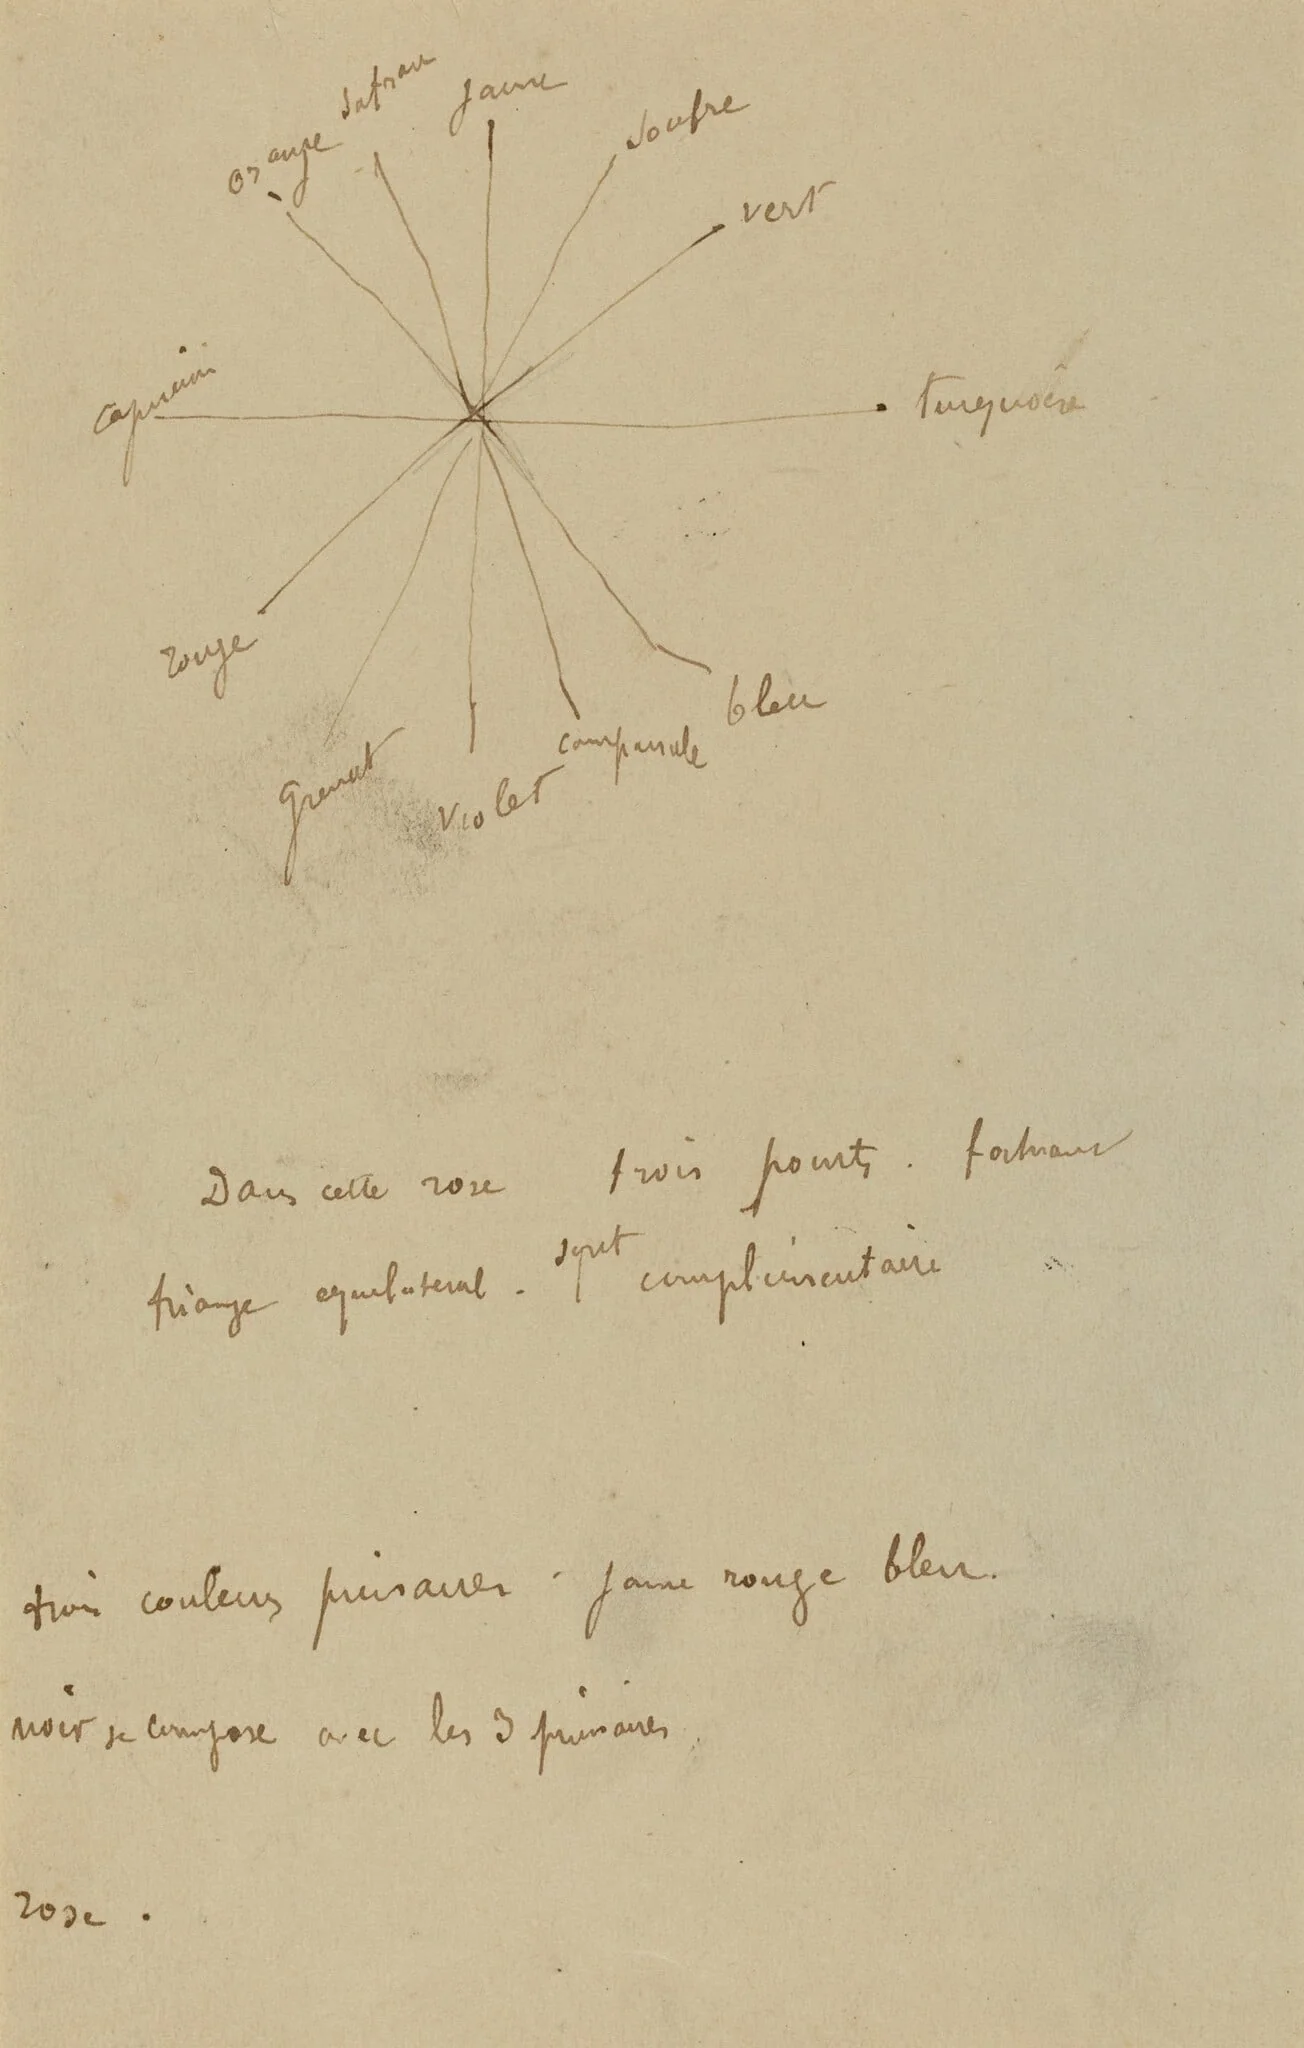 orange
safran
jaune
soufre
vert
capucine
turquoise
rouge
grenat
violet
campanule
bleu
Dans cette rose trois points . formant
triange equilateral . sont complémentaire
trois couleurs primaires . jaune rouge bleu.
noir se compose avec les 3 primaires
rose .